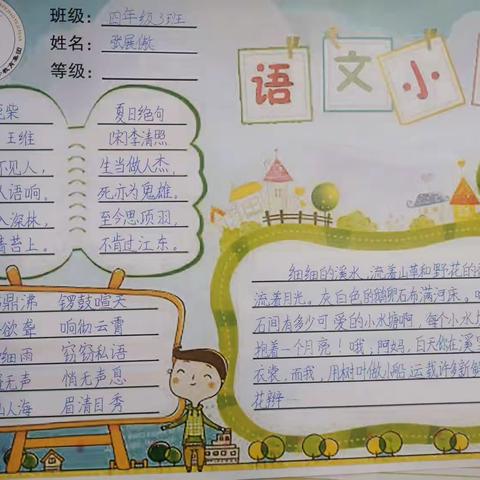 班级：四年级3班
姓名：张展傲
等级：
语文小
柴
王维
不见人，
人语响。
入深林，
青苔上。
夏日绝句
[宋]李清照
生当做人杰，
死亦为鬼雄。
至今思项羽，
不肯过江东。
鼎沸 锣鼓喧天
欲聋 响彻云霄
细雨 窃窃私语
无声 悄无声息
人海 眉清目秀
细细的溪水，流着山草和野花的
流着月光。灰白色的鹅卵石布满河床。
石间有多少可爱的小水塘啊，每个小水
抱着一个月亮！哦，阿妈，白天你在溪
衣裳，而我，用树叶做小船，运载许多新
花瓣……